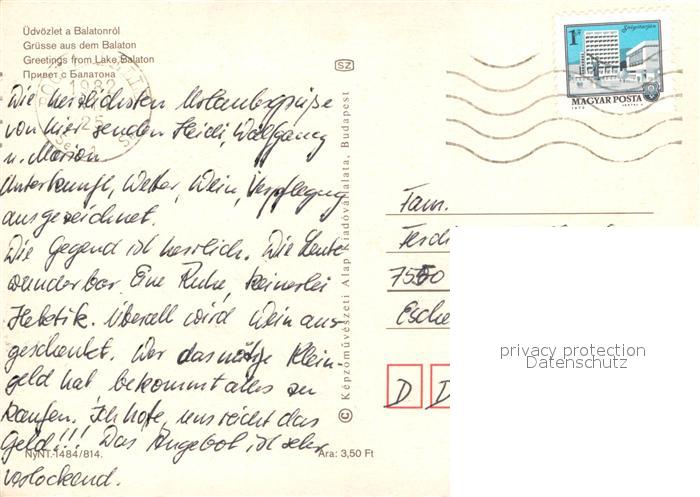 Üdvözlet a Balatonról
Grüsse aus dem Balaton
Greetings from Lake Balaton
Привет с Балатона
Die herzlichsten Urlaubsgrüße
von hier senden Heidi, Wolfgang
u. Marion
Unterkunft, Wetter, Wein, Verpflegung
ausgezeichnet.
Die Gegend ist herrlich. Die Leute
wunderbar. Eine Ruhe, keinerlei
Hektik. Überall wird Wein aus-
geschenkt. Wer das nötige Klein-
geld hat bekommt alles zu
kaufen. Ich hoffe, uns reicht das
Geld!!! Das Angebot ist sehr
verlockend.
NyNT.-1484/814.
Ára: 3,50 Ft
SZ
© Képzőművészeti Alap Kiadóvállalata, Budapest
1982
25
1 Ft
Salgótarján
MAGYAR POSTA
1972
Fam.
7550
D D
privacy protection
Datenschutz